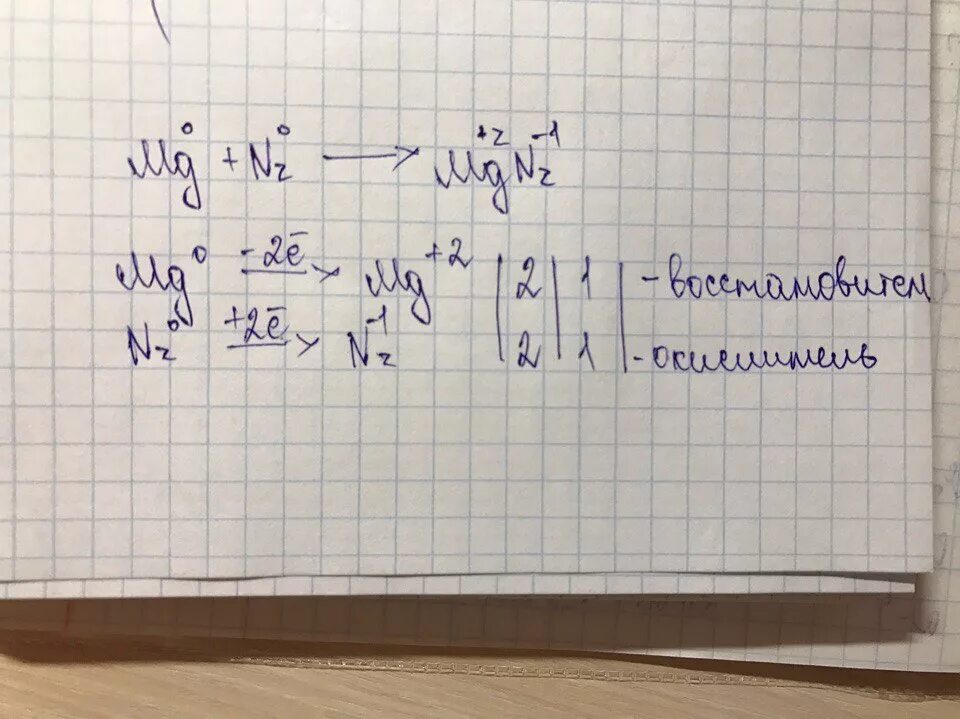 Mg⁰ + N₂⁰ → Mg⁺²N₂⁻¹
Mg⁰ -2ē → Mg⁺² | 2 | 1 | - восстановител
N₂⁰ +2ē → N₂⁻¹ | 2 | 1 | - окислитель